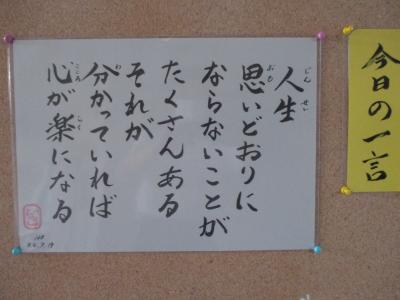 今日の一言
人生
思いどおりに
ならないことが
たくさんある
それが
分かっていれば
心が楽になる